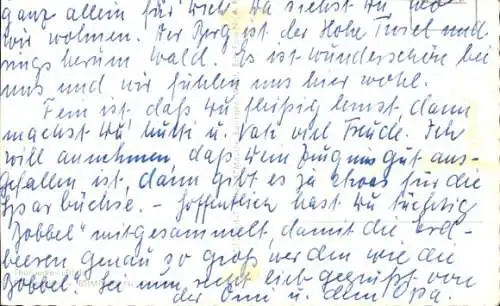 ganz allein für Dich. Da siehst Du, wo
wir wohnen. Der Berg ist der Hohe Twiel und
rings herum Wald. Es ist wunderschön bei
uns und wir fühlen uns hier wohl.
Fein ist, daß Du fleißig lernst, dann
machst Du, Mutti u. Vati viel Freude. Ich
will annehmen, daß Dein Zeugnis gut aus-
gefallen ist, dann gibt es ja etwas für die
Sparbüchse. - Hoffentlich hast Du tüchtig
"Bobbel" mitgesammelt, damit die Erd-
beeren genau so groß werden wie die
Bobbel. Sei nun recht lieb gegrüßt von
der Omi u. dem Opa.